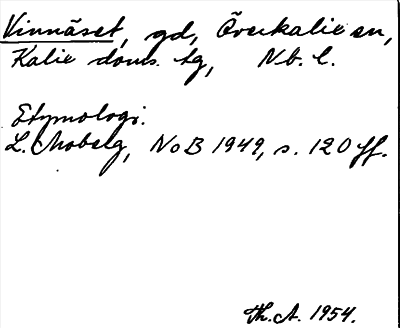 Vinnäset, gd, Överkalix sn,
Kalix doms. tg, Nb. l.
Etymologi.
L. Moberg, NoB 1949, s. 120 ff.
Th. A. 1954.